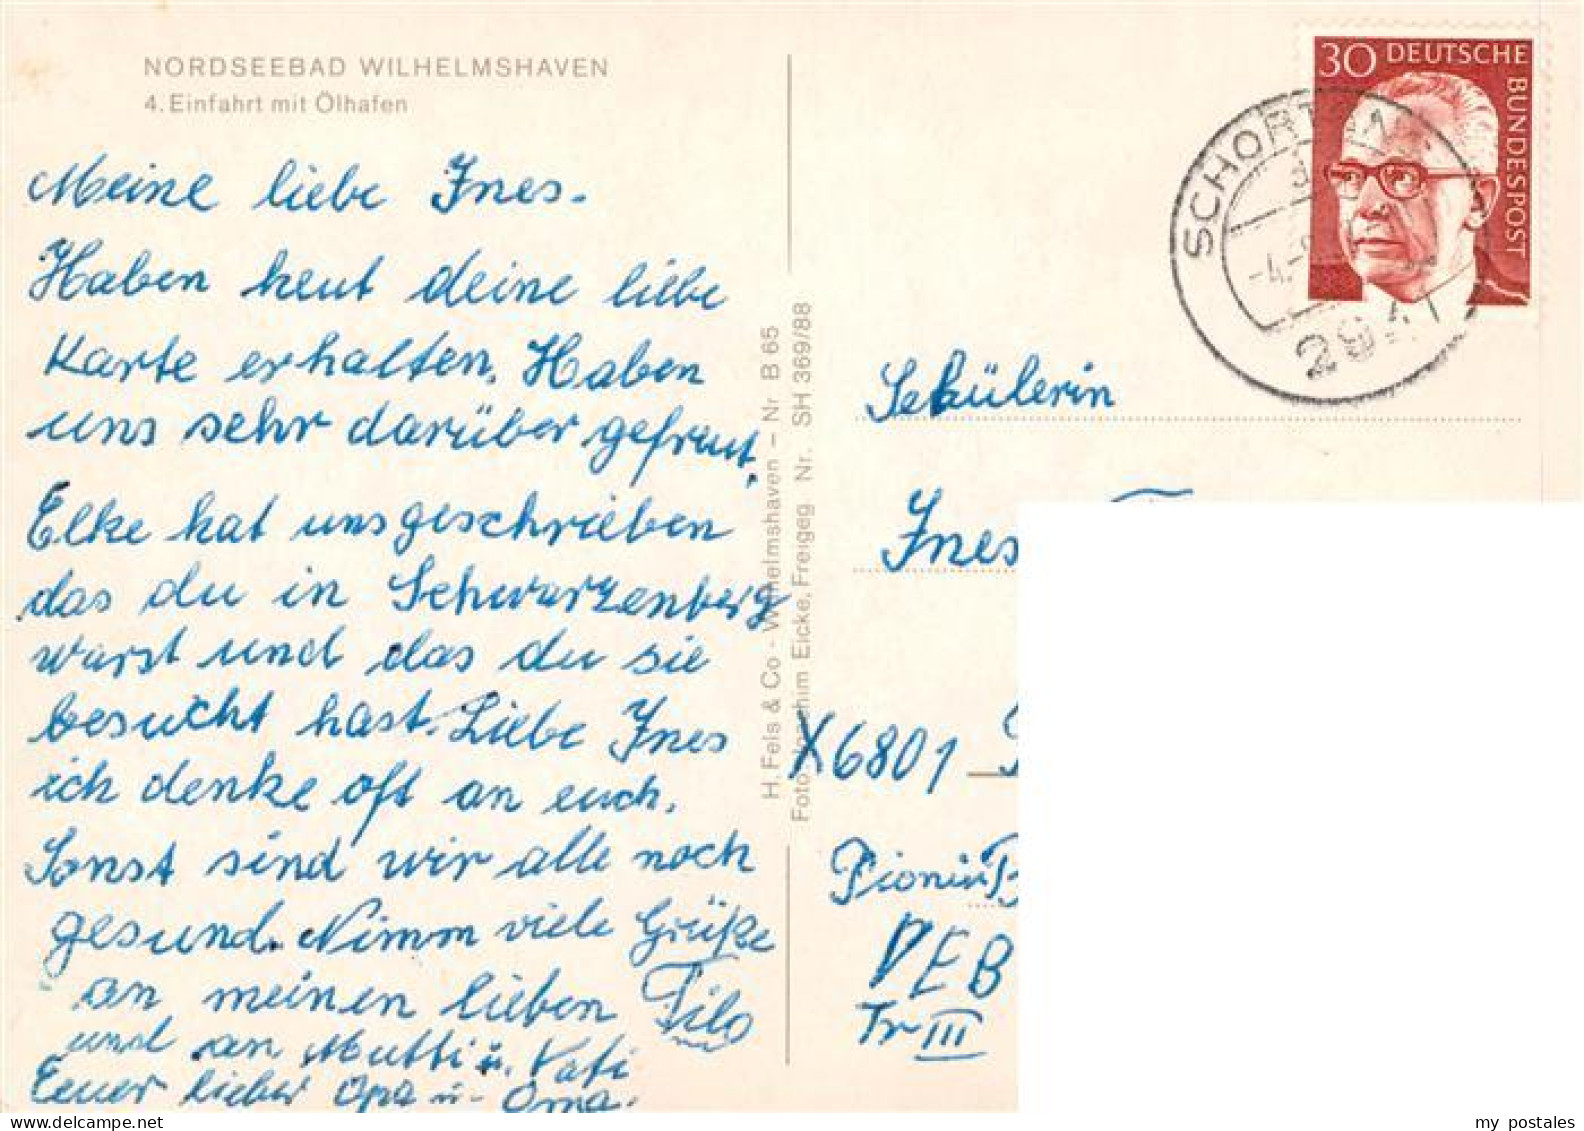 NORDSEEBAD WILHELMSHAVEN
4. Einfahrt mit Ölhafen
Meine liebe Ines.
Haben heut deine liebe
Karte erhalten. Haben
uns sehr darüber gefreut.
Elke hat uns geschrieben
das du in Schwarzenberg
warst und das du sie
besucht hast. Liebe Ines
ich denke oft an euch.
Sonst sind wir alle noch
gesund. Nimm viele Grüße
an meinen lieben Tilo
und an Mutti u. Vati
Eeuer lieber Opa u. Oma.
H. Fels & Co - Wilhelmshaven - Nr B 65
Foto: Joachim Eicke, Freigeg Nr. SH 369/88
30 DEUTSCHE
BUNDESPOST
SCHORTENS
-4.-
294
Schülerin
Ines
X6801
Pionier
VEB
Tr III
my postales